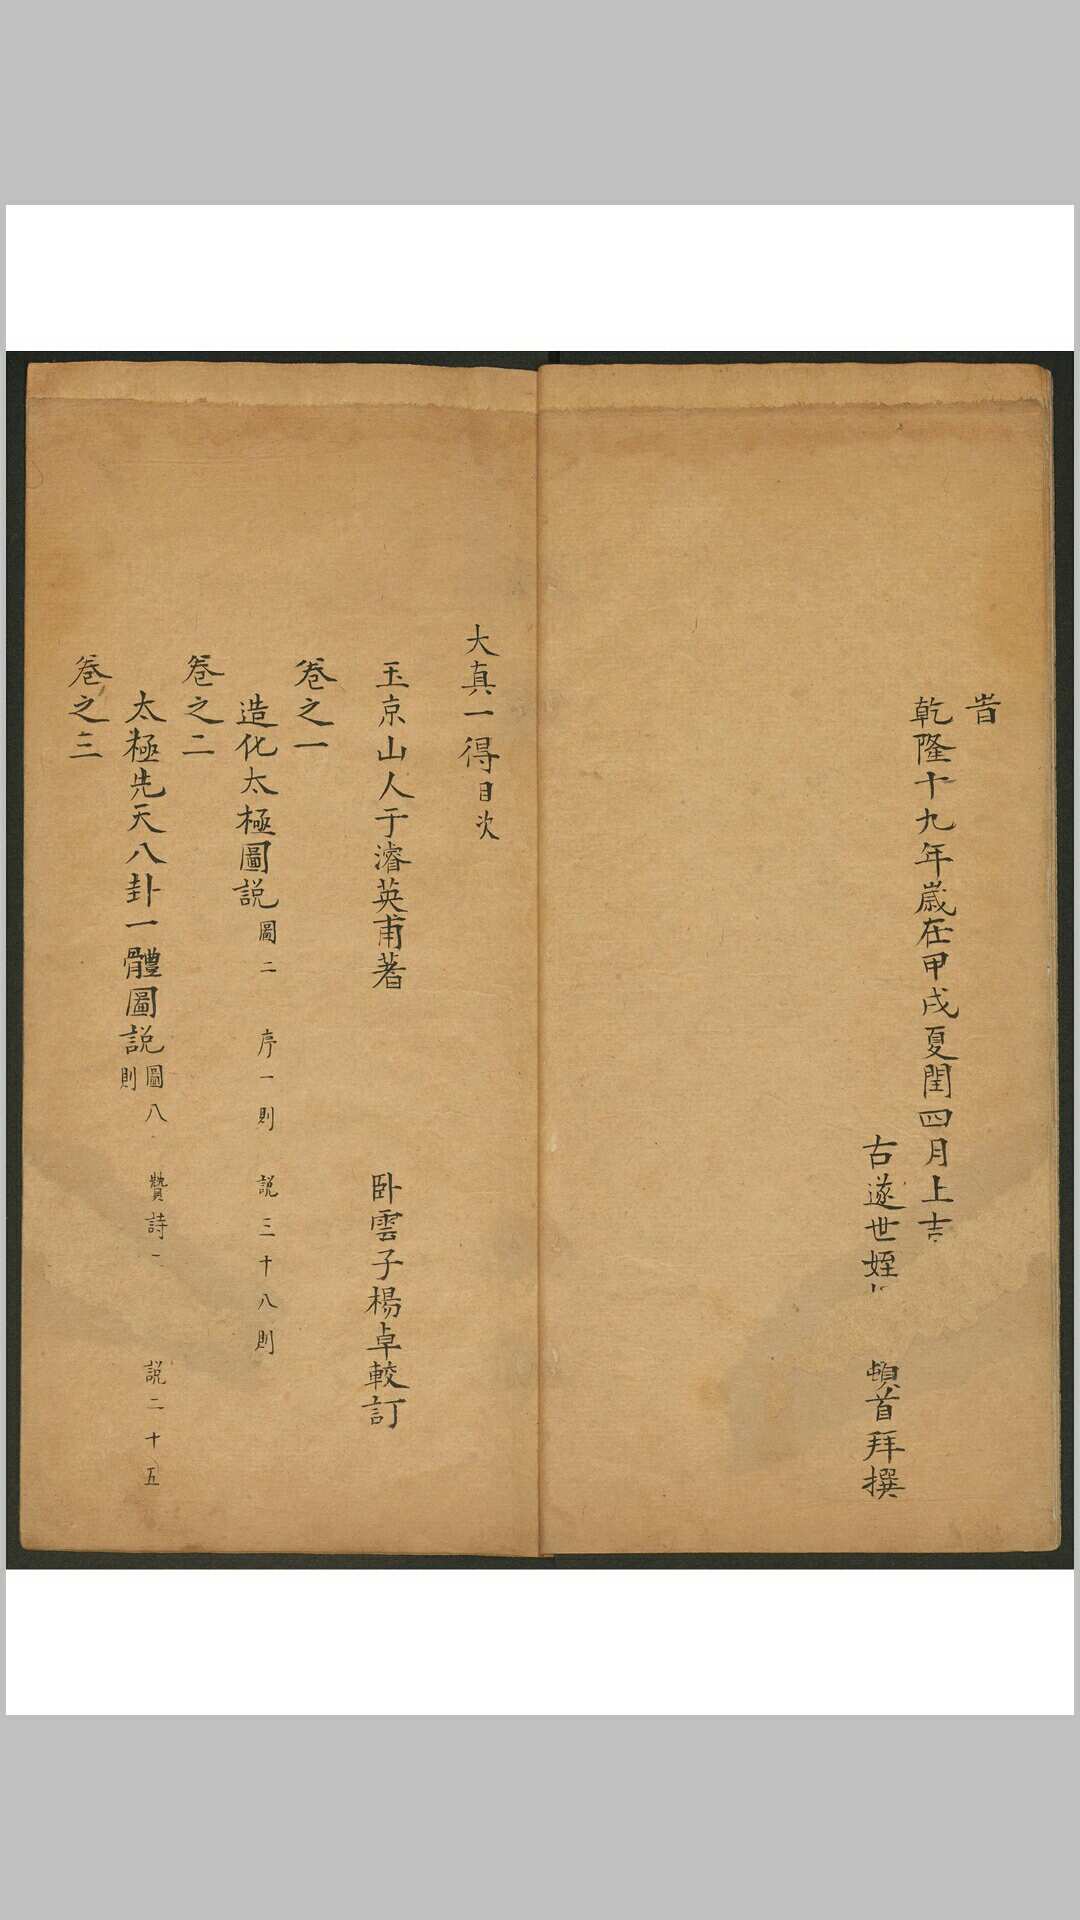 旹
乾隆十九年歲在甲戌夏閏四月上吉
古遂世姪
頓首拜撰
大真一得目次
玉京山人于濬英甫著 卧雲子楊卓較訂
卷之一
造化太極圖說 圖二 序一則 説三十八則
卷之二
太極先天八卦一體圖説 圖八 贊詩 説二十五則
卷之三